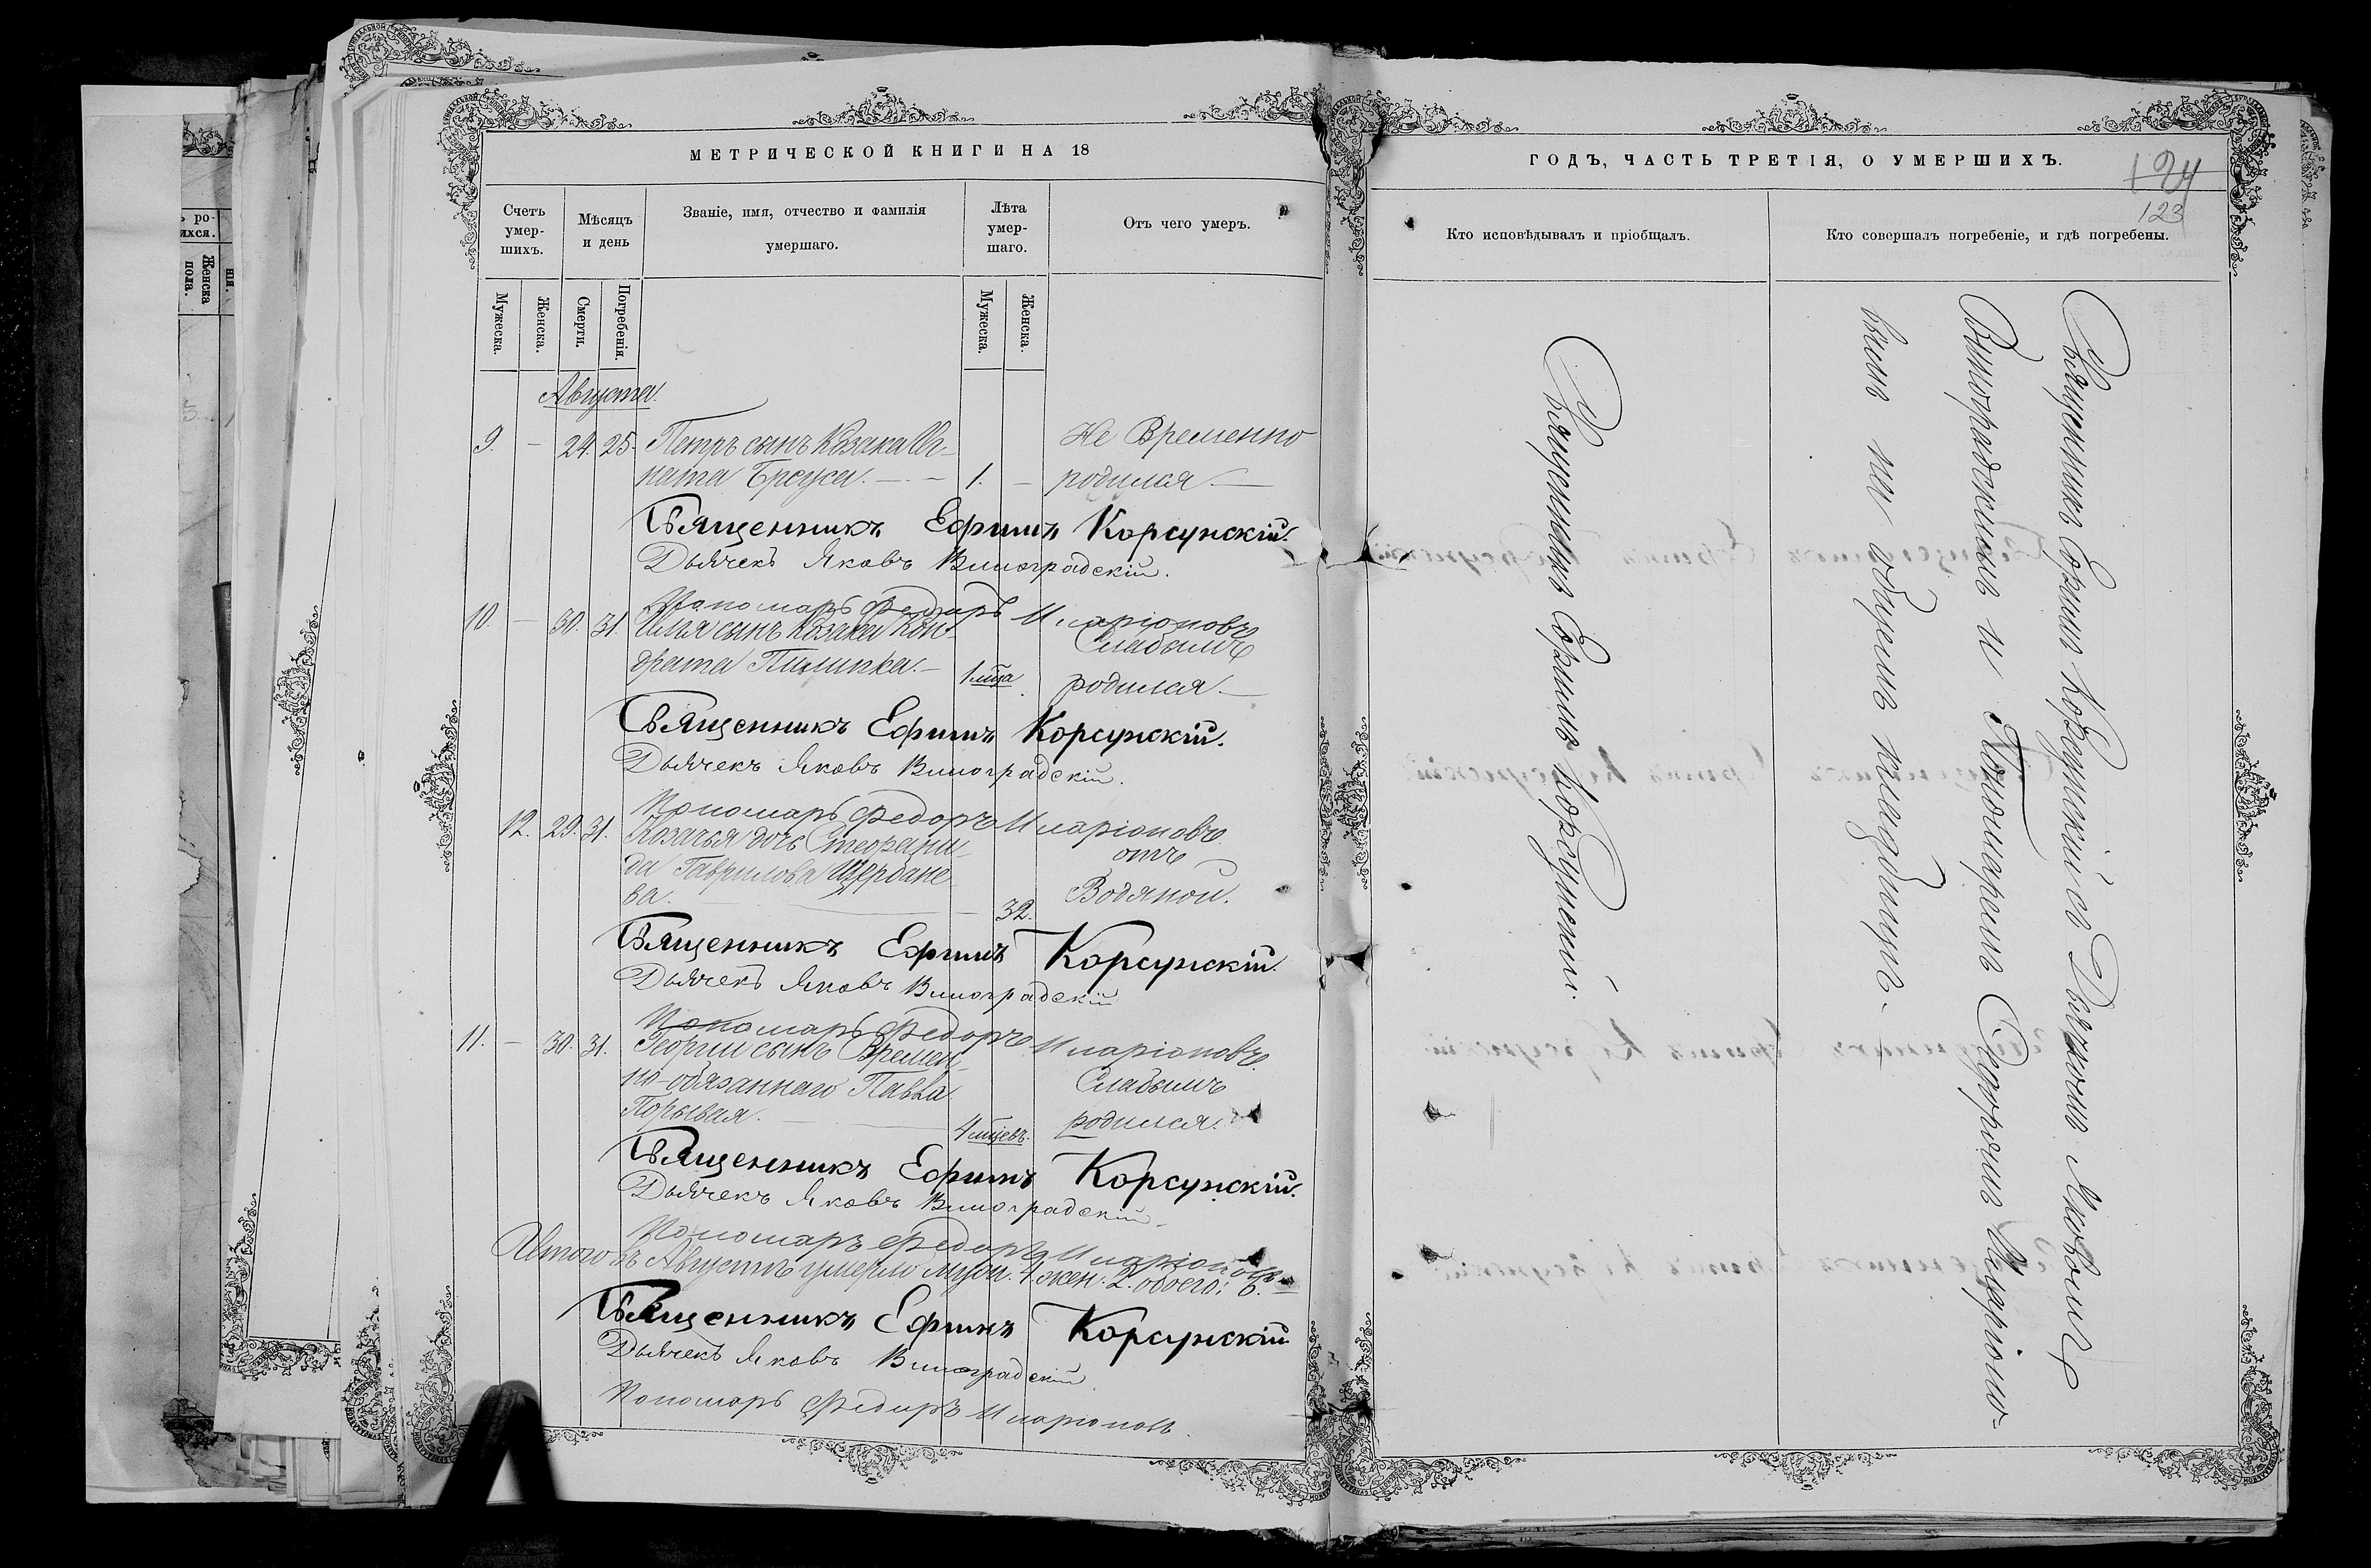 МЕТРИЧЕСКОЙ КНИГИ НА 18
Счетъ умер-
шихъ.
Мѣсяцъ
и день
Званіе, имя, отчество и фамилія
умершаго.
Лѣта
умер-
шаго.
Отъ чего умеръ.
Мужеска.
Женска.
Смерти.
Погребенія.
Мужеска.
Женска.
Августа.
9. – 24. 25. Петръ сынъ Козака Иг- Не Временно
ната Бреуса. – 1. – родился. –
Священникъ Ефимъ Корсунскій.
Дьячекъ Яковъ Виноградскій.
Пономарь Федоръ Иларіоновъ
10. – 30. 31. Илія сынъ Козака Кон- Слабымъ
драта Пилипка. – 1 мца родился. –
Священникъ Ефимъ Корсунскій.
Дьячекъ Яковъ Виноградскій.
Пономарь Федоръ Иларіоновъ.
12. 29. 31. Козачья дочь Стефани- отъ
да Гаврилова Щербане- Водяной.
ва. – 32.
Священникъ Ефимъ Корсунскій.
Дьячекъ Яковъ Виноградскій
Пономарь Федоръ Иларіоновъ.
11. – 30. 31. Георгіи сынъ Времен- Слабымъ
но-обязаннаго Павла родился.
Порывая. – 4 мцевъ.
Священникъ Ефимъ Корсунскій.
Дьячекъ Яковъ Виноградскій
Пономарь Федоръ Иларіоновъ
Итого въ Августѣ умерло муж. 4. жен. 2. обоего: 6. –
Священникъ Ефимъ Корсунскій
Дьячекъ Яковъ Виноградскій
Пономарь Федоръ Иларіоновъ.
ГОДЪ, ЧАСТЬ ТРЕТІЯ, О УМЕРШИХЪ.
124
123
Кто исповѣдывалъ и пріобщалъ.
Кто совершалъ погребеніе, и гдѣ погребены.
Священникъ Ефимъ Корсунскій.
Священникъ Ефимъ Корсунскій съ Дьячкомъ Яковомъ
Виноградскимъ и Пономаремъ Федоромъ Иларіоно-
вымъ на общемъ кладбищѣ. –
ро-
ихся.
Женска
пола.